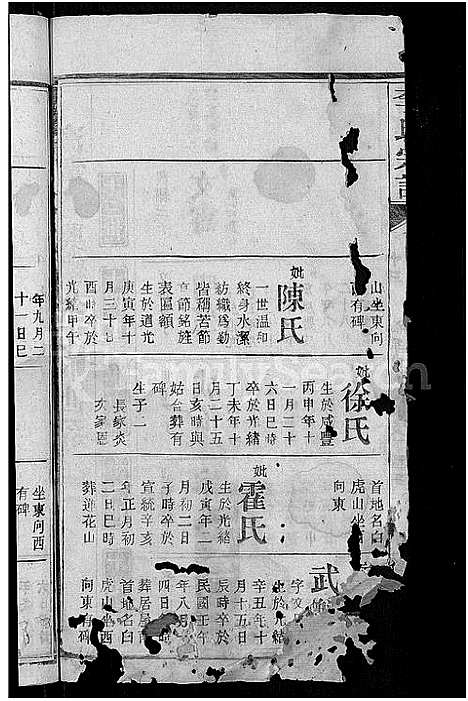 氏宗譜
山坐東向
有碑
妣陳氏
一世溫和
終身水潔
紡織爲勤
皆稱苦節
育節銘旌
表匾額
生於道光
庚寅年十
月三十日
酉時卒於
光緒甲午
年九月二
十一日巳
妣徐氏
生於咸豐
丙申年十
一月二十
六日巳時
卒於光緒
丁未年十
月二十五
日亥時與
姑合葬有
碑
生子二
長家炎
次家
首地名白
虎山坐
向東
妣霍氏
生於光緒
戊寅年二
月初二日
子時卒於
宣統辛亥
年正月初
二日巳時
葬道花山
坐東向西
有碑
武
字
生於光緒
辛丑年十
月十五日
辰時卒於
民國壬午
年八月十
四日時
葬居屋
首地名白
虎山坐西
向東有碑
FamilySearch